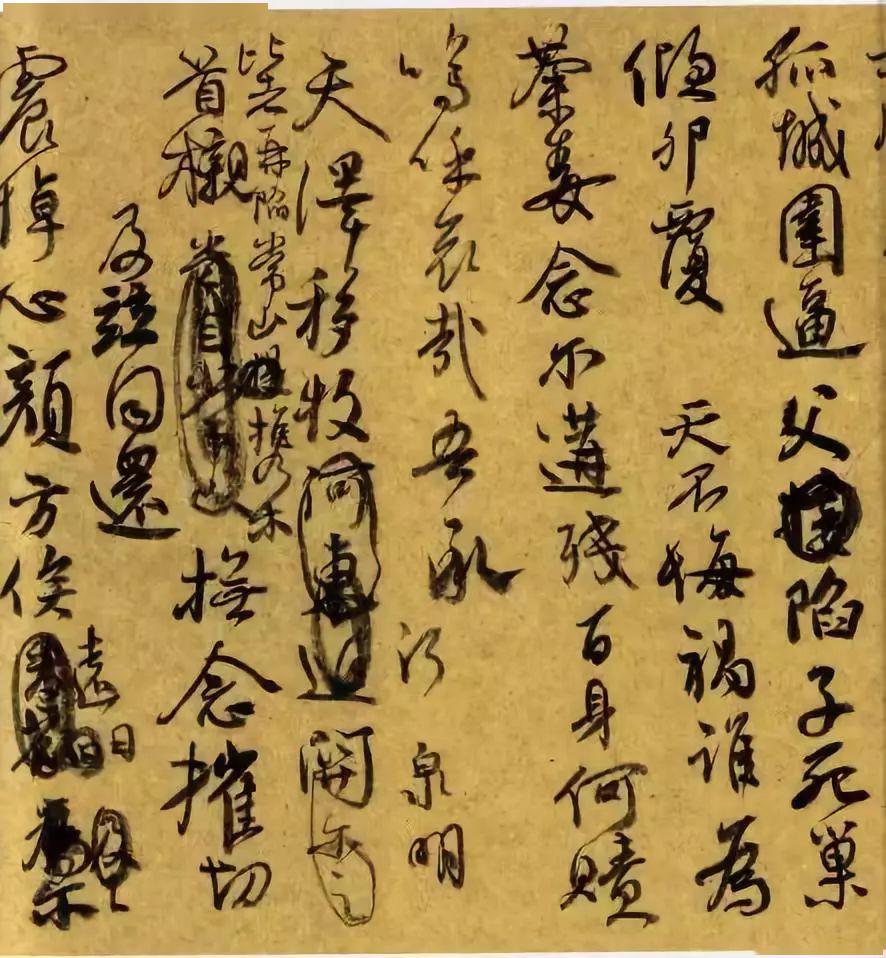 孤城圍逼父陷子死巢
傾卵覆 天不悔禍誰為
荼毒念爾遘殘百身何贖
嗚呼哀哉吾承 河 泉明
天澤移牧河東近關爾之
比者再陷常山攜爾
首櫬 撫念摧切
及茲同還
震悼心顏方俟
遠日